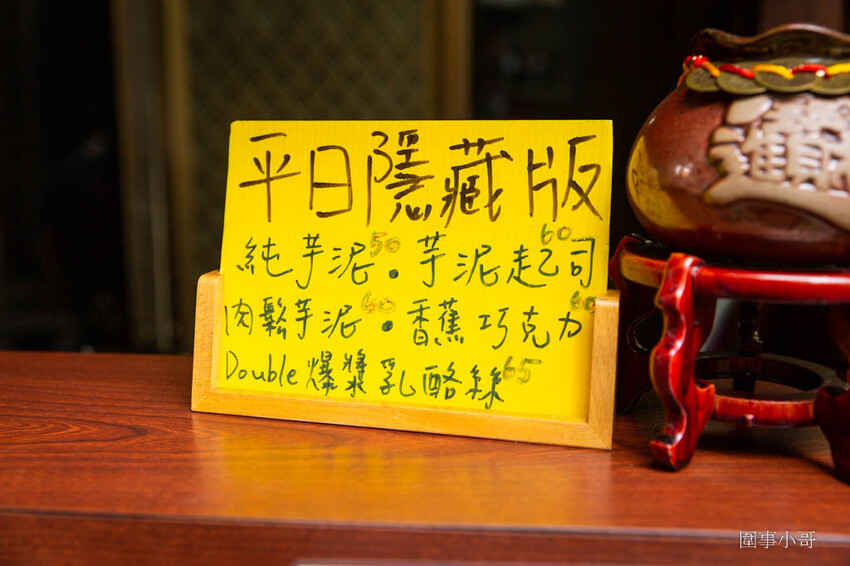 平日隱藏版
純芋泥50・芋泥起司60
肉鬆芋泥60・香蕉巧克力60
Double爆漿乳酪絲65
圍事小哥